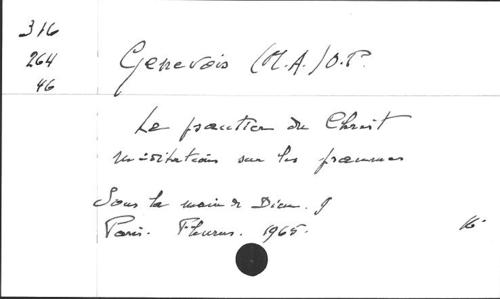 316
264
46
Genevois (M.A.) O.P.
Le psautier du Christ
méditations sur les psaumes
Sous la main de Dieu. 9
Paris. Fleurus. 1965.
16°